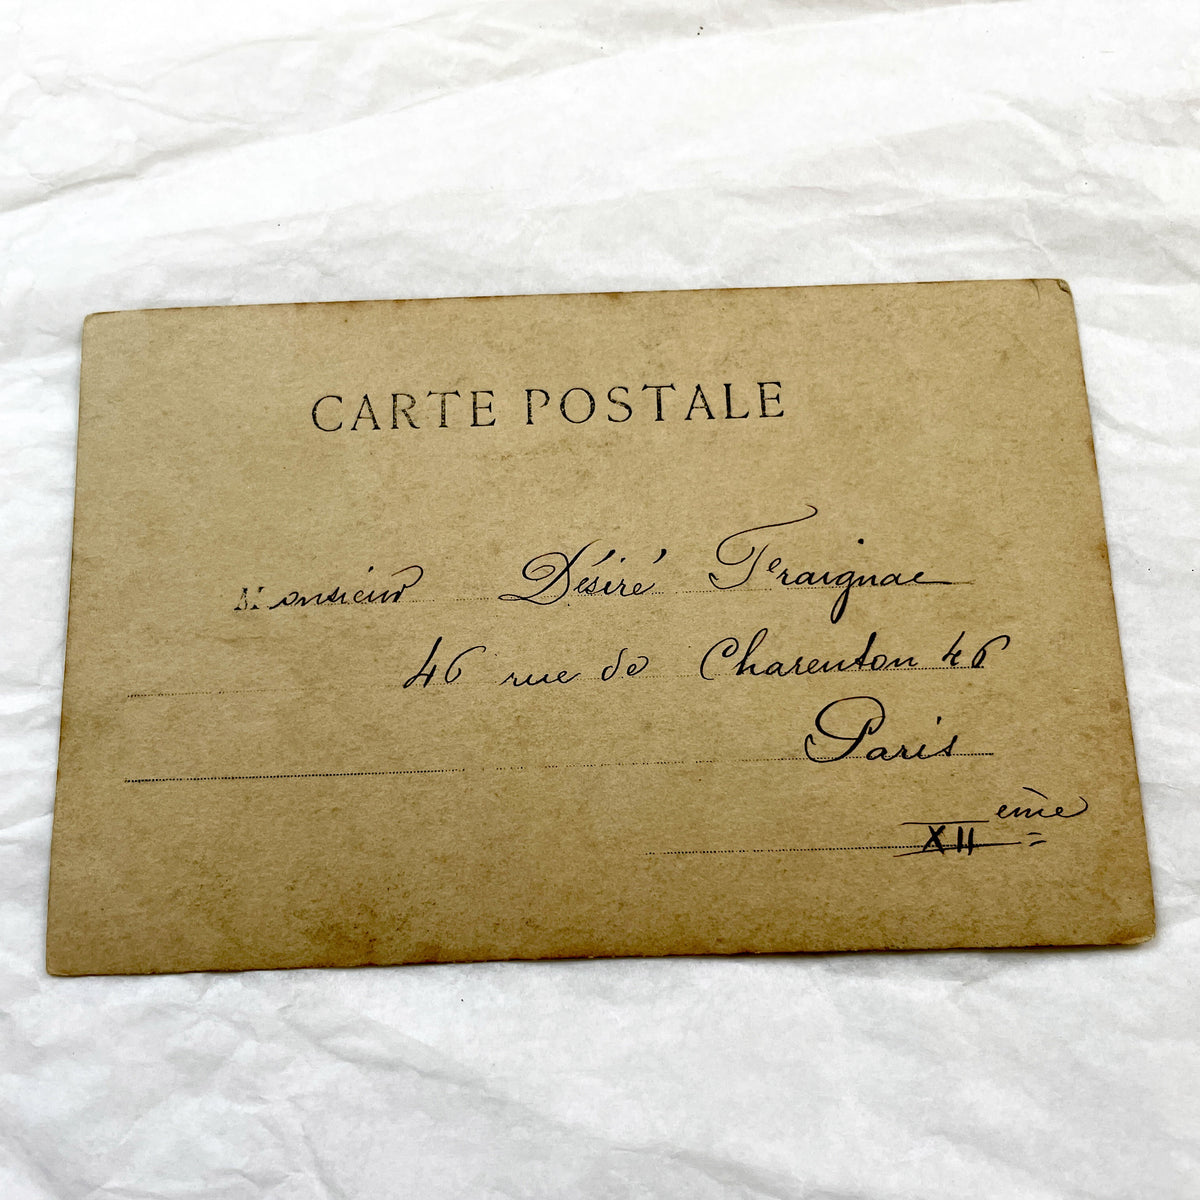 CARTE POSTALE
Monsieur Désiré Feraignac
46 rue de Charenton 46
Paris
XII eme